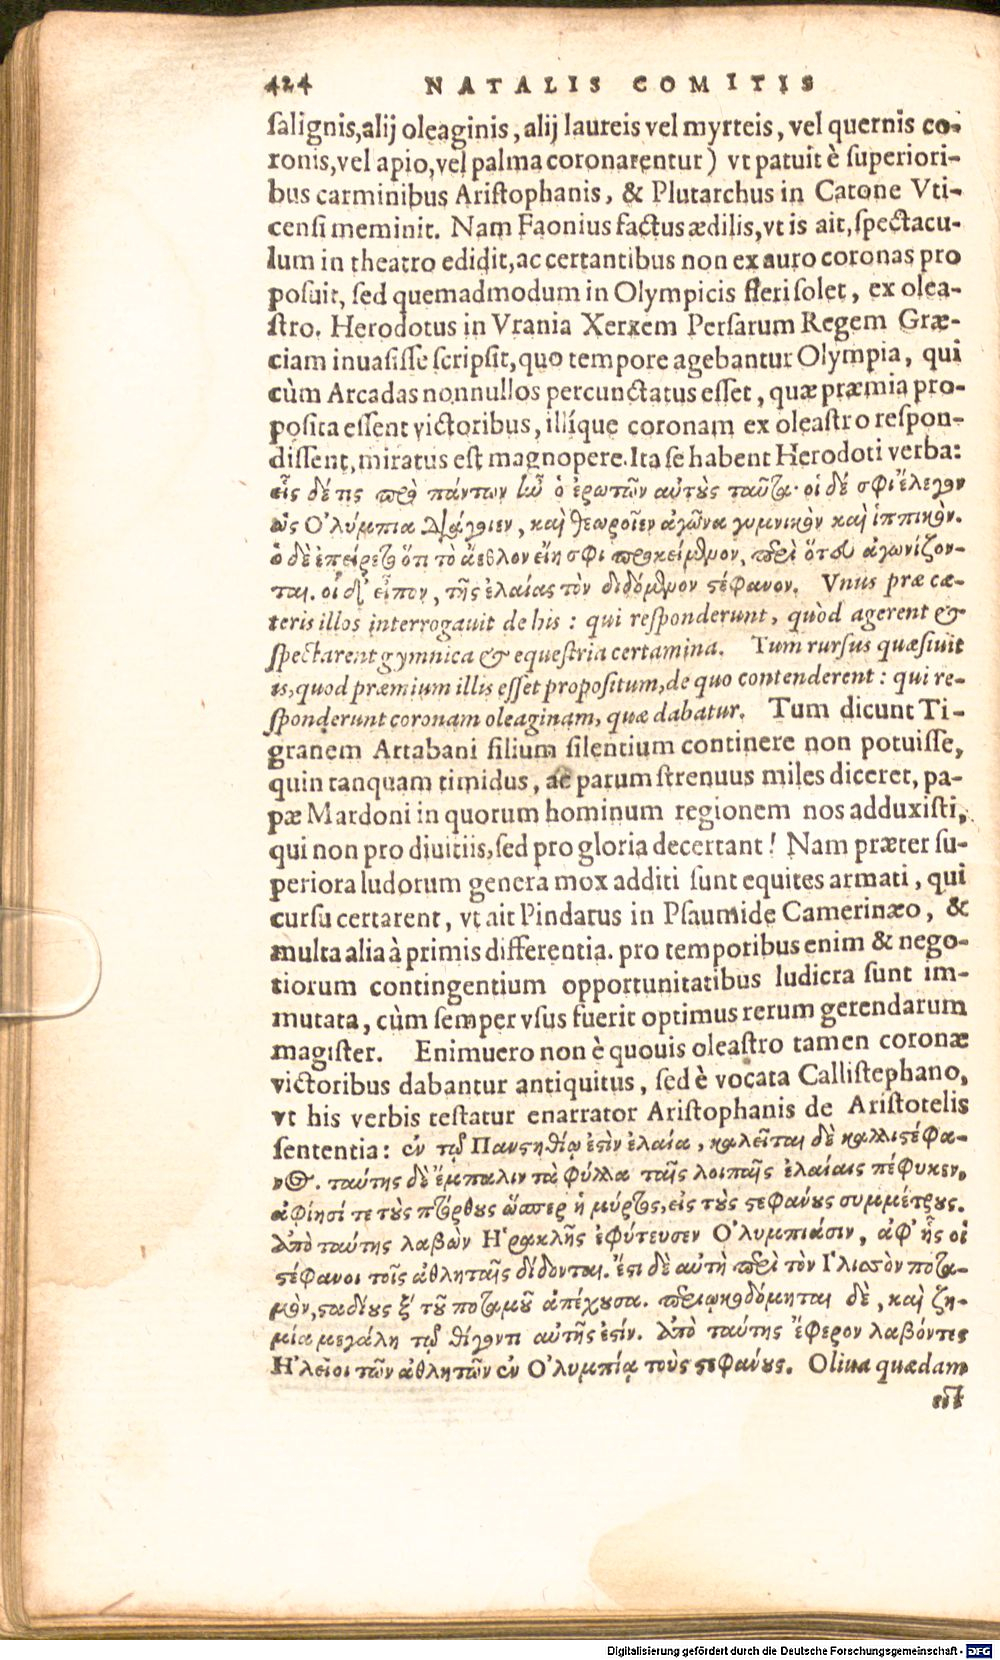 424 NATALIS COMITIS
ſalignis,alij oleaginis, alij laureis vel myrteis, vel quernis co-
ronis,vel apio,vel palma coronarentur) vt patuit è ſuperiori-
bus carminibus Ariſtophanis, & Plutarchus in Catone Vti-
cenſi meminit. Nam Faonius factus ædilis,vt is ait,ſpectacu-
lum in theatro edidit,ac certantibus non ex auro coronas pro
poſuit, ſed quemadmodum in Olympicis fieri ſolet, ex olea-
ſtro. Herodotus in Vrania Xerxem Perſarum Regem Græ-
ciam inuaſiſſe ſcripſit,quo tempore agebantur Olympia, qui
cùm Arcadas nonnullos percunctatus eſſet, quæ præmia pro-
poſita eſſent victoribus, illíque coronam ex oleaſtro reſpon-
diſſent,miratus eſt magnopere.Ita ſe habent Herodoti verba:
εἷς δέ τις πρὸ πάντων ἦν ὁ ἐρωτῶν αὐτοὺς ταῦτα· οἱ δέ σφι ἔλεγον
ὡς Ο᾿λύμπια ἄγοιεν, καὶ θεωροῖεν ἀγῶνα γυμνικὸν καὶ ἱππικὸν.
ὁ δὲ ἐπείρετο ὅτι τὸ ἄεθλον εἴη σφι προκείμενον, περὶ ὅτευ ἀγωνίζον-
ται. οἱ δ᾽ εἶπον, τῆς ἐλαίας τὸν διδόμενον στέφανον. Vnus præ cæ-
teris illos interrogauit de his: qui reſponderunt, quòd agerent &
ſpectarent gymnica & equeſtria certamina. Tum rurſus quæſiuit
is,quod præmium illis eſſet propoſitum,de quo contenderent: qui re-
ſponderunt coronam oleaginam, quæ dabatur. Tum dicunt Ti-
granem Artabani filium ſilentium continere non potuiſſe,
quin tanquam timidus, ac parum ſtrenuus miles diceret, pa-
pæ Mardoni in quorum hominum regionem nos adduxiſti,
qui non pro diuitiis,ſed pro gloria decertant! Nam præter ſu-
periora ludorum genera mox additi ſunt equites armati, qui
curſu certarent, vt ait Pindarus in Pſaumide Camerinæo, &
multa alia à primis differentia. pro temporibus enim & nego-
tiorum contingentium opportunitatibus ludicra ſunt im-
mutata, cùm ſemper vſus fuerit optimus rerum gerendarum
magiſter. Enimuero non è quouis oleaſtro tamen coronæ
victoribus dabantur antiquitus, ſed è vocata Calliſtephano,
vt his verbis teſtatur enarrator Ariſtophanis de Ariſtotelis
ſententia: ἐν τῷ Πανσηθίῳ ἐστὶν ἐλαία, καλεῖται δὲ καλλιστέφα-
νος. ταύτης δὲ ἔμπαλιν τὰ φύλλα ταῖς λοιπαῖς ἐλαίαις πέφυκεν,
ἀφίησί τε τοὺς πτόρθους ὥσπερ ἡ μύρτος,εἰς τοὺς στεφάνους συμμέτρους.
ἀπὸ ταύτης λαβὼν Η῾ρακλῆς ἐφύτευσεν Ο᾿λυμπιάσιν, ἀφ᾽ ἧς οἱ
στέφανοι τοῖς ἀθληταῖς δίδονται. ἔστι δὲ αὐτὴ περὶ τὸν Ι᾿λισσὸν ποτα-
μὸν,σταδίους ξ´ τοῦ ποταμοῦ ἀπέχουσα. περιῳκοδόμηται δὲ, καὶ ζη-
μία μεγάλη τῷ θίγοντι αὐτῆς ἐστίν. ἀπὸ ταύτης ἔφερον λαβόντες
Η᾿λεῖοι τῶν ἀθλητῶν ἐν Ο᾿λυμπίᾳ τοὺς στεφάνους. Oliua quædam
eſt
Digitalisierung gefördert durch die Deutsche Forschungsgemeinschaft - DFG